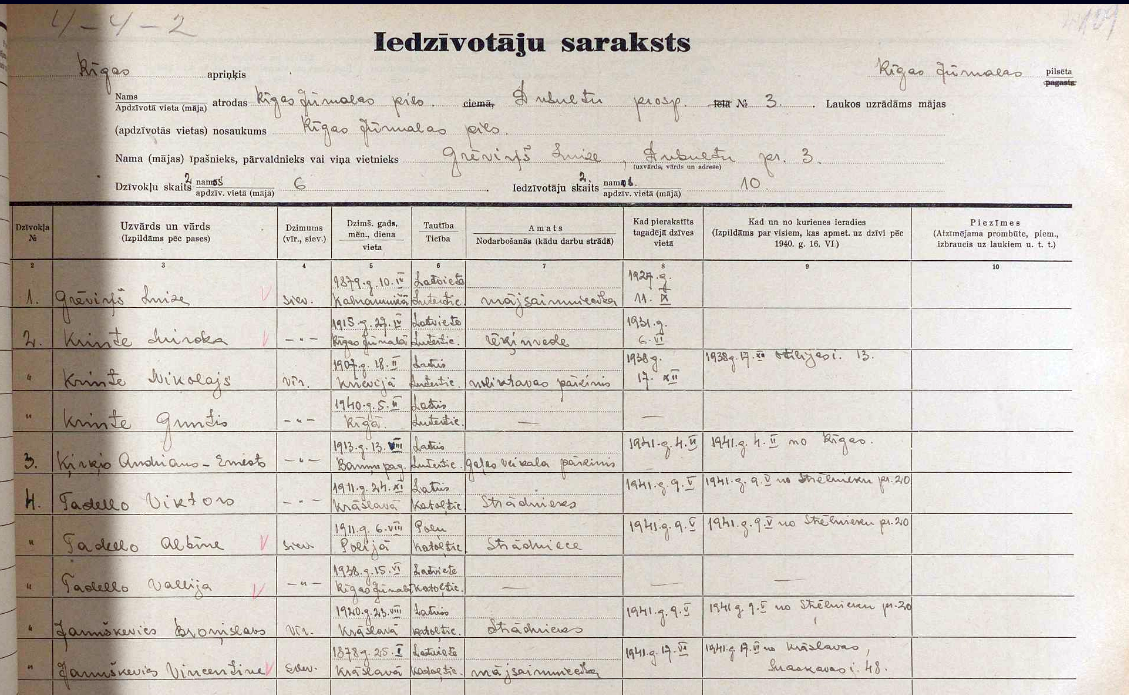 4-4-2
109
Iedzīvotāju saraksts
Rīgas apriņķis Rīgas Jūrmalas pilsēta pagasts
Nams Apdzīvotā vieta (māja) atrodas Rīgas Jūrmalas pils. ciemā, Dubultu prosp. ielā № 3. Laukos uzrādāms mājas
(apdzīvotās vietas) nosaukums Rīgas Jūrmalas pils.
Nama (mājas) īpašnieks, pārvaldnieks vai viņa vietnieks Grēviņš Luize, Dubultu pr. 3.
(uzvārds, vārds un adrese)
Dzīvokļu skaits 2 namos apdzīv. vietā (mājā) 6 Iedzīvotāju skaits 2. namos apdzīv. vietā (mājā) 10
Dzīvokļa № Uzvārds un vārds (Izpildāms pēc pases) Dzimums (vīr., siev.) Dzimš. gads, mēn., diena vieta Tautība Ticība Amats Nodarbošanās (kādu darbu strādā) Kad pierakstīts tagadējā dzīves vietā Kad un no kurienes ieradies (Izpildāms par visiem, kas apmet. uz dzīvi pēc 1940. g. 16. VI) Piezīmes (Atzīmējama prombūte, piem., izbraucis uz laukiem u. t. t.)
2 3 4 5 6 7 8 9 10
1879.g. 10. IV Latviete 1927.g.
1. Grēviņš Luize siev. Luteritic. mājsaimniecka 11. IX
1915.g. 27. IV Latviete 1931.g.
2. Krinte -"- Rīgas Jūrmalā Luteritic. 6. VI
1907.g. 18. II Latvis 1938.g. 1938.g. 17. XII 13.
" Krinte Nikolajs vīr. Krievijā Luteritic. noliktavas pārzinis 17. XII
1940.g. 5. II Latvis
" Krinte Guntis -"- Rīgā. Luteritic. — —
1913.g. 13. VIII Latvis 1941.g. 4. II 1941.g. 4. II no Rīgas.
3. Andrians-Ernests -"- pag. Luteritic. gaļas veikala pārzinis
1911.g. 24. XI Latvis 1941.g. 9. V 1941.g. 9. V no Strēlnieku pr. 20
4. Tadello Viktors -"- Krāslavā Katoltic. Strādnieks
1911.g. 6. VIII Poļu 1941.g. 9. V 1941.g. 9. V no Strēlnieku pr. 20
" Tadello Albīne siev. Polijā Katoltic. Strādniece
1938.g. 15. VI Latviete
" Tadello Vallija -"- Rīgas Jūrmalā Katoltic. — — —
1920.g. 23. VIII Latvis 1941.g. 9. V 1941.g. 9. V no Strēlnieku pr. 20
" Jamiškevics Broņislavs vīr. Krāslavā Katoltic. Strādnieks
1878.g. 25. I Latviete 1941.g. 17. VI 1941.g. 17. VI no Krāslavas,
" Jamiškevics Vincentine siev. Krāslavā Katoltic. mājsaimniecka i. 48.